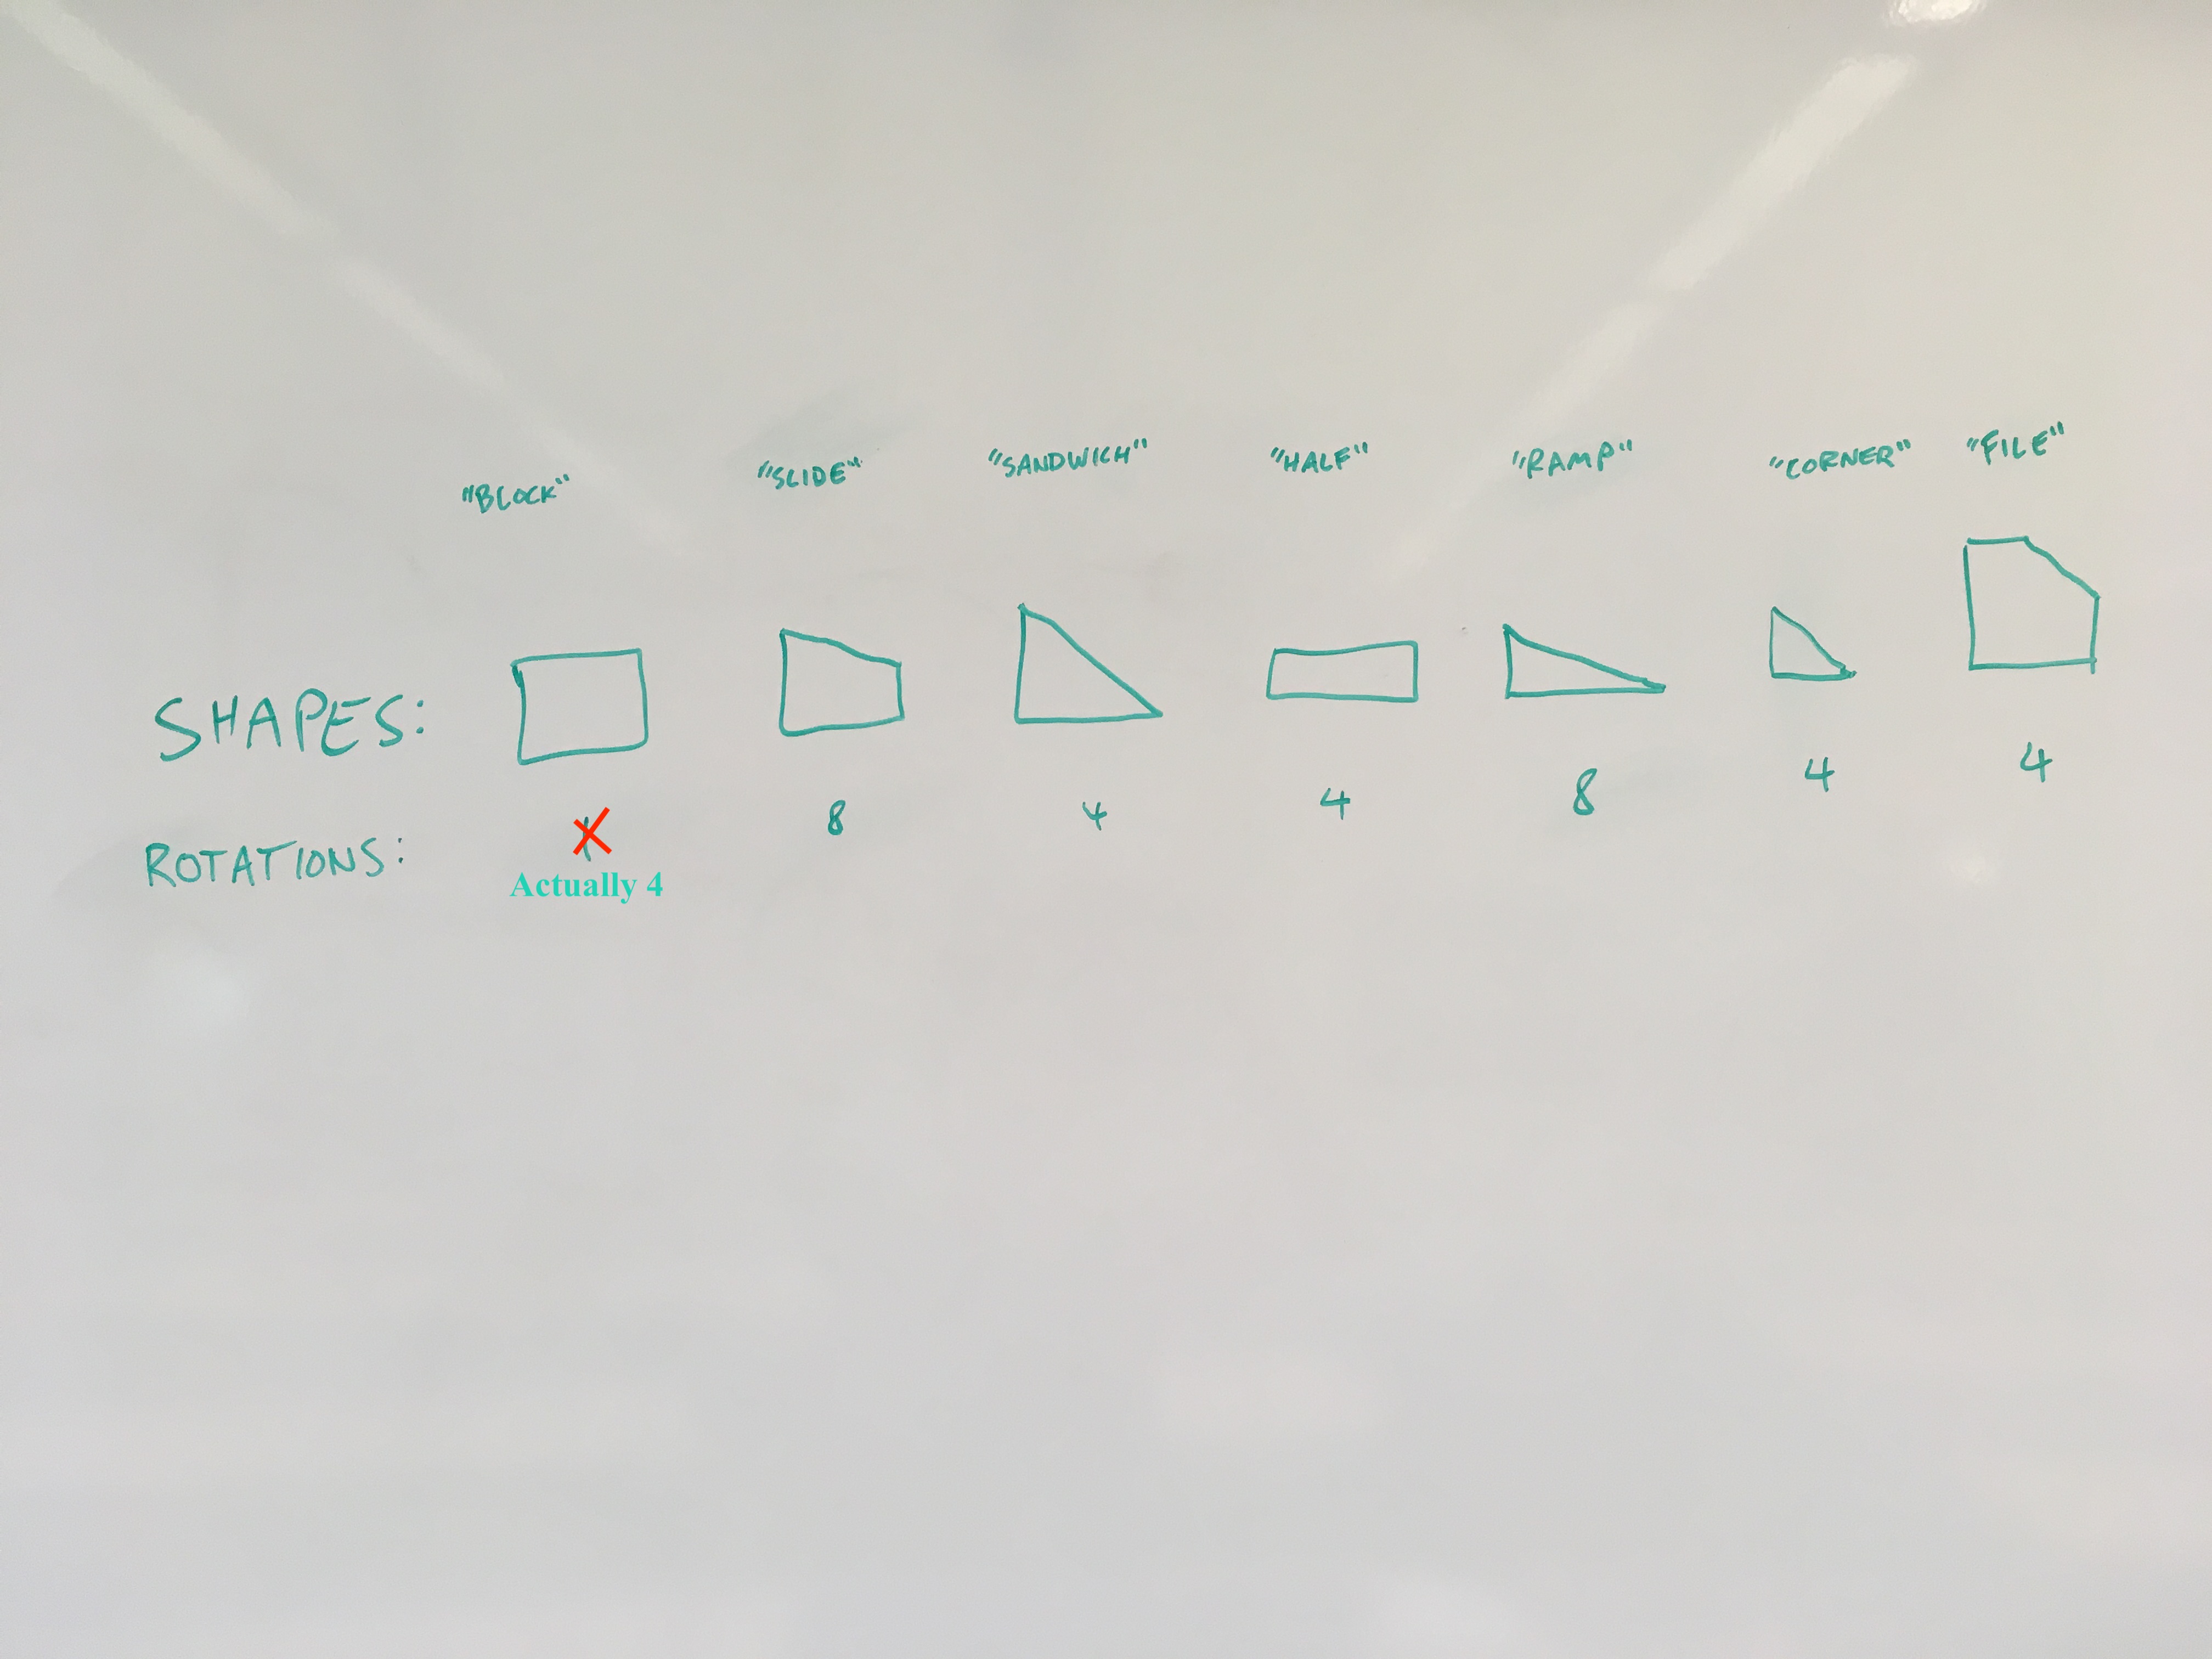 "BLOCK" "SLIDE" "SANDWICH" "HALF" "RAMP" "CORNER" "FILE"
SHAPES:
ROTATIONS: 1 8 4 4 8 4 4
Actually 4